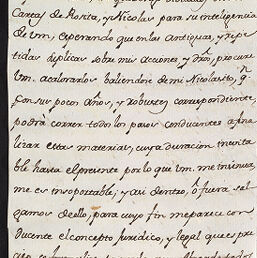 Cartas de Rosita, y Nicolas para su inteligencia
de vm, esperando que en las antiguas, y repe
tidas suplicas sobre mis acciones, y dros, procure
vm. acalorarlos baliendose de mi Nicolasito, q
con sus pocos años, y robustez correspondiente,
podrá correr todos los pasos conducientes a fina
lizar estas materias, cuya duracion invita
ble hasta el presente por lo que vm. me insinua,
me es insoportable; y asi dentro, ô fuera sal
gamos de ello, para cuyo fin me parece con
ducente el concepto Juridico, y legal que es pre